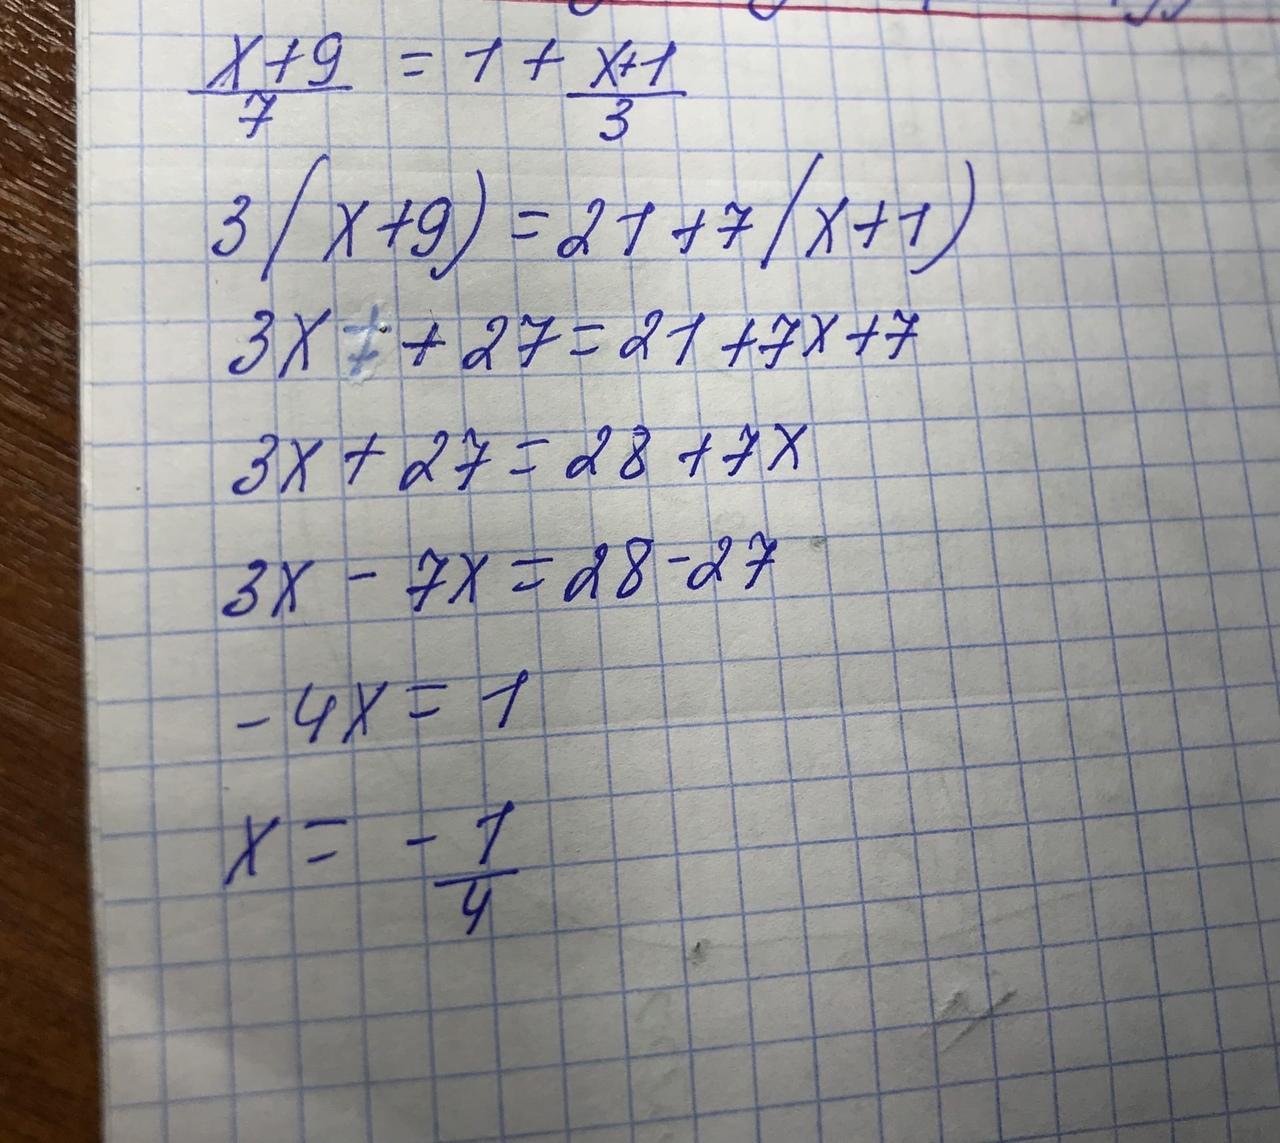 x+9/7 = 1 + x+1/3
3(x+9) = 21 + 7(x+1)
3x + 27 = 21 + 7x + 7
3x + 27 = 28 + 7x
3x - 7x = 28 - 27
-4x = 1
x = -1/4